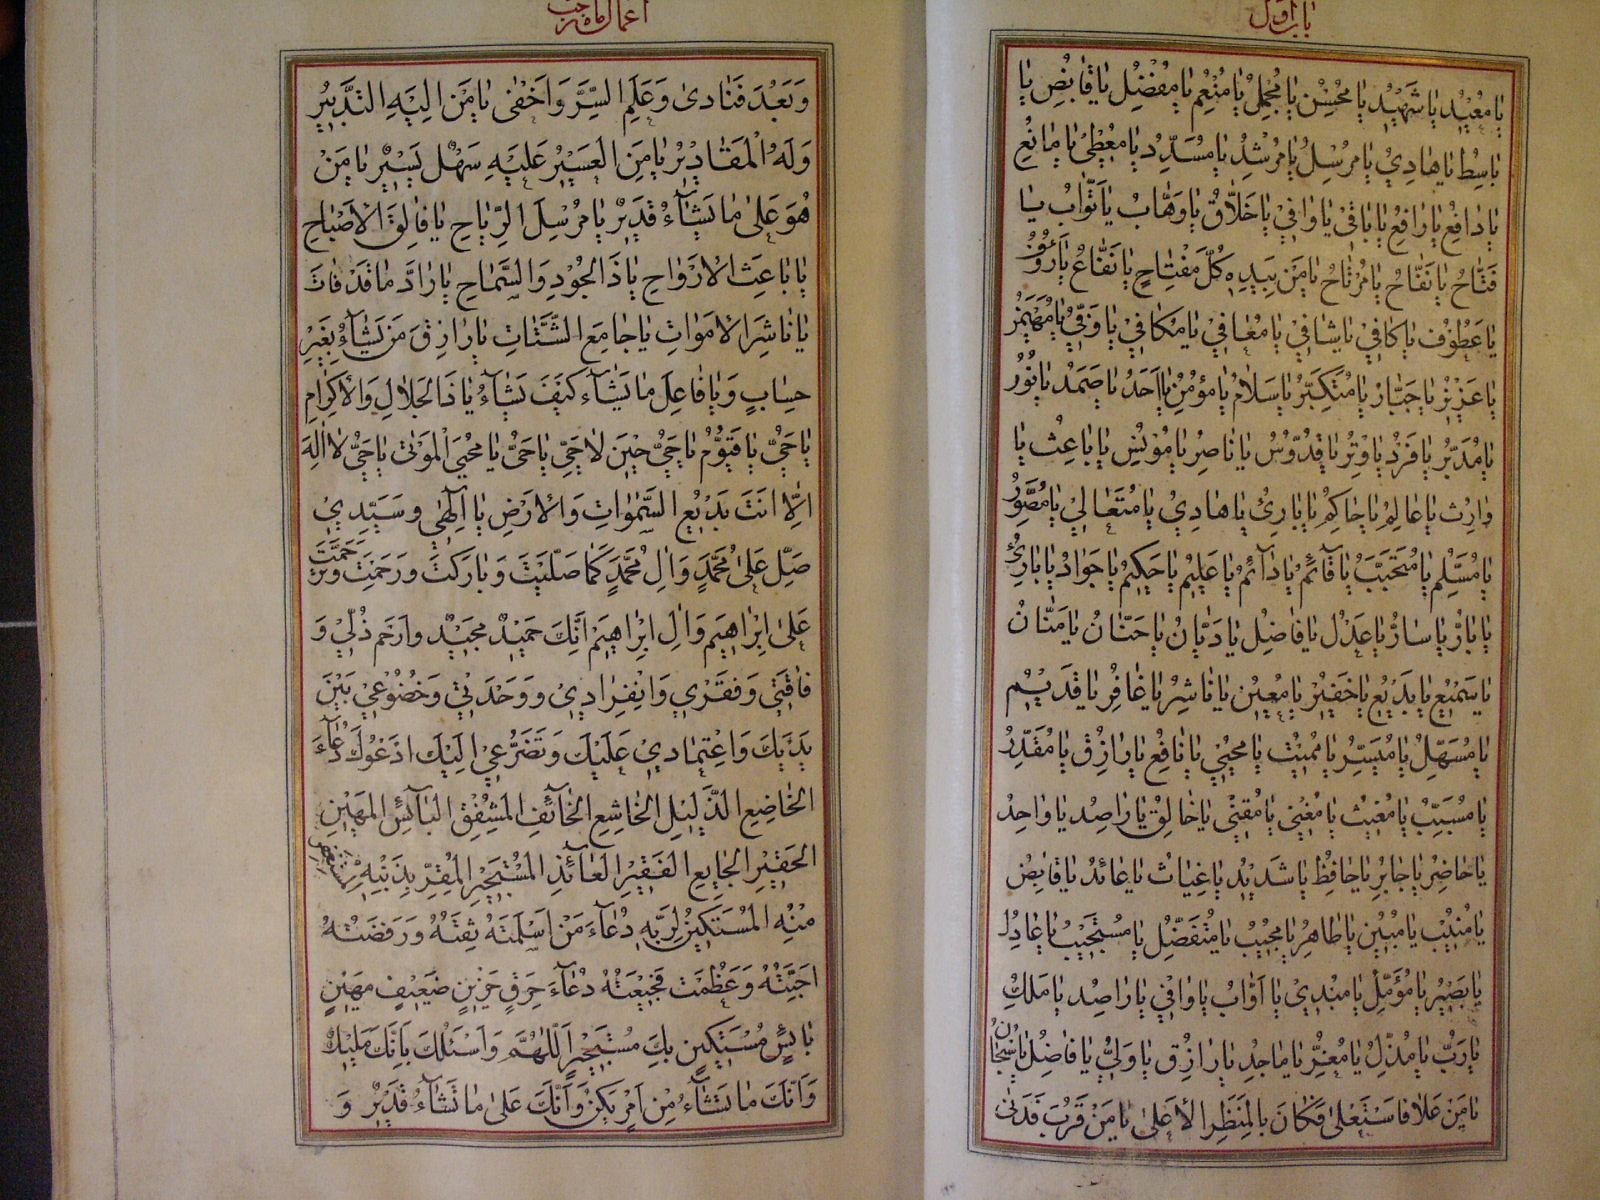 باب اول
يا معيد يا شهيد يا محسن يا مجمل يا منعم يا مفضل يا قابض يا
باسط يا هادي يا مرسل يا مرشد يا مسدد يا معطي يا مانع
يا دافع يا رافع يا باقي يا وافي يا خلاق يا وهاب يا تواب يا
فتاح يا نفاح يا مرتاح يا من بيده كل مفتاح يا نفاع يا رؤف
يا عطوف يا كافي يا شافي يا معافي يا مكافي يا وفي يا مهيمن
يا عزيز يا جبار يا متكبر يا سلام يا مؤمن يا احد يا صمد يا نور
يا مدبر يا فرد يا وتر يا قدوس يا ناصر يا مونس يا باعث يا
وارث يا عالم يا حاكم يا بارئ يا هادي يا متعالي يا مصور
يا مسلم يا متحبب يا قآئم يا دآئم يا عليم يا حكيم يا جواد يا بارئ
يا بار يا سار يا عدل يا فاضل يا ديان يا حنان يا منان
يا سميع يا بديع يا خفير يا معين يا ناشر يا غافر يا قديم
يا مسهل يا ميسر يا مميت يا محيي يا نافع يا رازق يا مقدر
يا مسبب يا مغيث يا مغني يا مقني يا خالق يا راصد يا واحد
يا حاضر يا جابر يا حافظ يا شديد يا غياث يا عائد يا قابض
يا منيب يا مبين يا طاهر يا مجيب يا متفضل يا مستجيب يا عادل
يا بصير يا مؤمل يا مبدي يا اواب يا وافي يا راصد يا ملك
يا رب يا مذل يا معز يا ماجد يا رازق يا ولي يا فاضل يا سبحان
يا من علا فاستعلى فكان بالمنظر الاعلى يا من قرب فدنى
اعمال ماه رجب
وبعد فنادى وعلم السر واخفى يا من اليه التدبير
وله المقادير يا من العسير عليه سهل يسير يا من
هو على ما يشآء قدير يا مرسل الرياح يا فالق الاصباح
يا باعث الارواح يا ذا الجود والسماح يا راد ما قد فات
يا ناشر الاموات يا جامع الشتات يا رازق من يشآء بغير
حساب ويا فاعل ما يشآء كيف يشآء يا ذا الجلال والاكرام
يا حي يا قيوم يا حي حين لا حي يا حي يا محيي الموتى يا حي لا اله
الا انت بديع السموات والارض يا الهي وسيدي
صل على محمد وال محمد كما صليت وباركت ورحمت وترحمت
على ابراهيم وال ابراهيم انك حميد مجيد وارحم ذلي و
فاقتي وفقري وانفرادي ووحدتي وخضوعي بين
يديك واعتمادي عليك وتضرعي اليك ادعوك دعآء
الخاضع الذليل الخاشع الخآئف المشفق البآئس المهين
الحقير الجايع الفقير العآئذ المستجير المقر بذنبه المستغفر
منه المستكين لربه دعآء من اسلمته ثقته ورفضته
احبته وعظمت فجيعته دعآء حرق حزين ضعيف مهين
بائس مستكين بك مستجير اللهم واسئلك بانك مليك
وانك ما تشآء من امر يكن وانك على ما تشآء قدير و